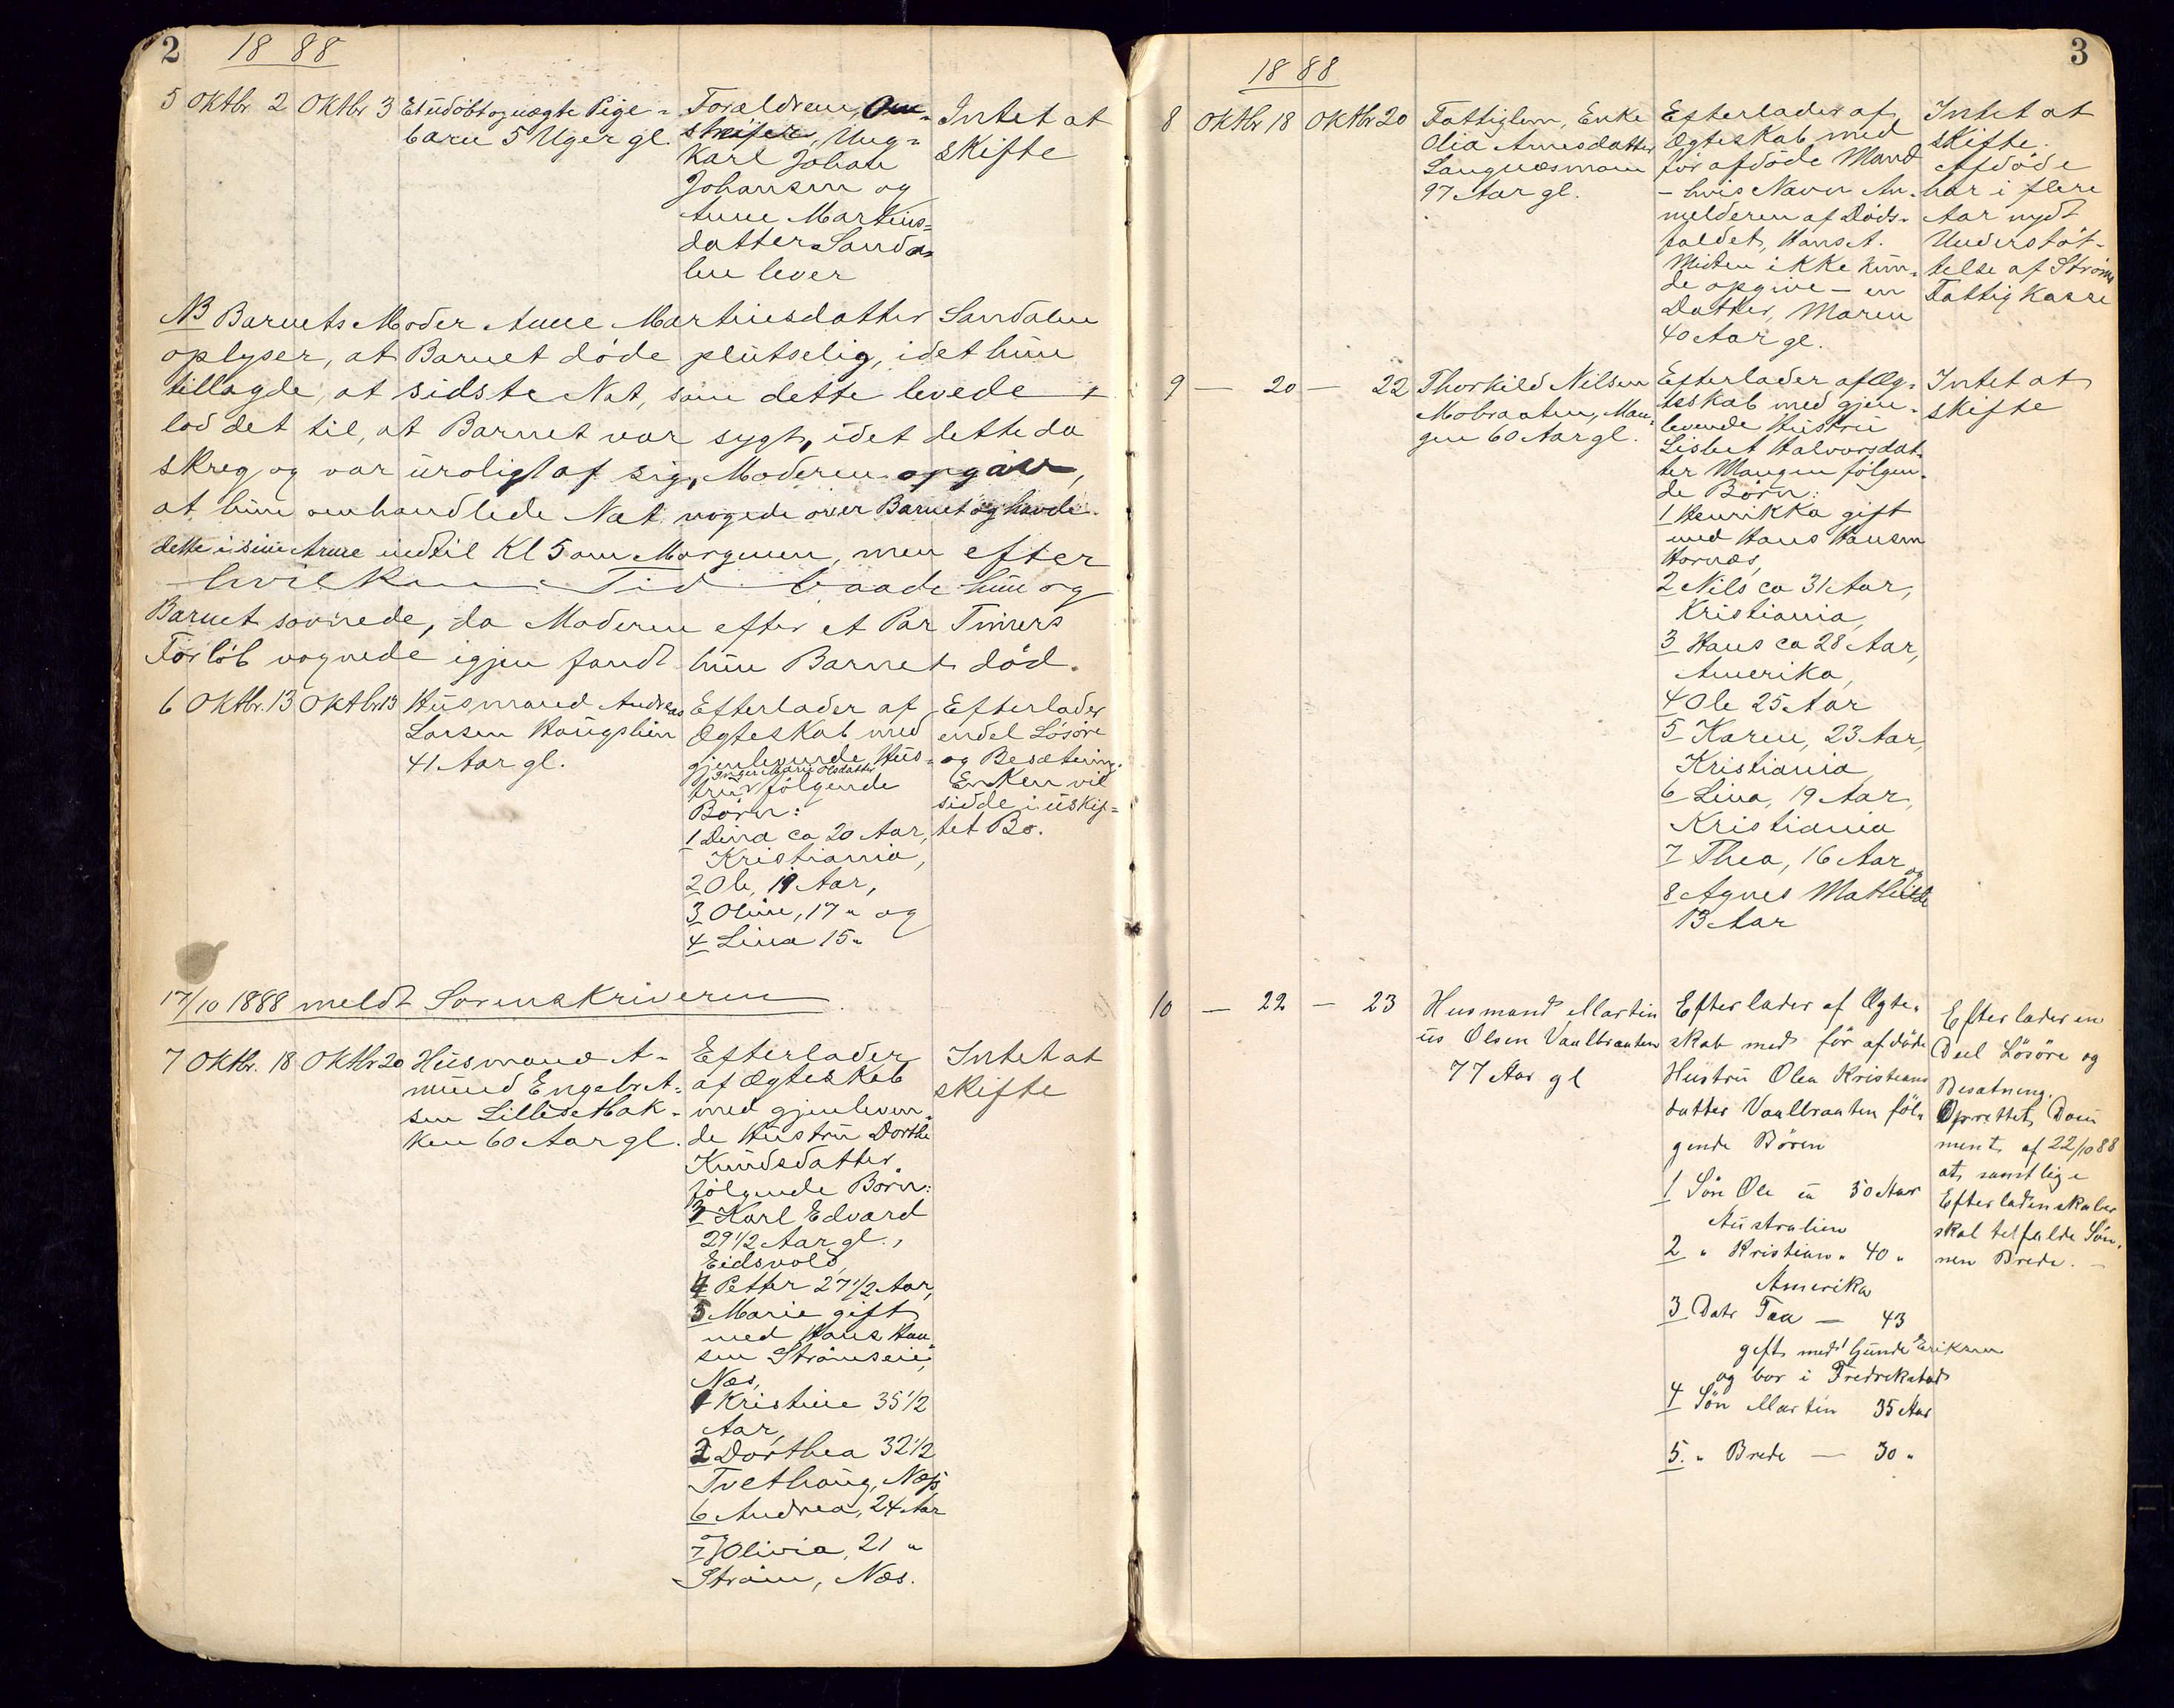 2
1888
5 Oktbr. 2 Oktbr 3 Et udöbt og uægte Pige-
barn 5 Uger gl.
Forældrene, Om-
streifer, Ung-
karl Johan
Johansen og
Anne Martins-
datter Sanda-
len lever
Intet at
skifte
NB Barnets Moder Anne Martinsdatter Sandalen
oplyser, at Barnet döde plutselig, idet hun
tillagde, at sidste Nat, som dette levede,
lod det til, at Barnet var sygt, idet dette da
skreg og var uroligt af sig, Moderen opgav,
at hun omhandlede Nat vogede over Barnet og havde
dette i sine Arme indtil Kl 5 om Morgenen, men efter
hvilken Tid baade hun og
Barnet sovnede, da Moderen efter et Par Timers
Forlöb vognede igjen fandt hun Barnet död.
6 Oktbr. 13 Oktbr 13 Husmand Andreas
Larsen Haugslien
41 Aar gl.
Efterlader af
Ægteskab med
gjenlevende Hus-
Inger Marie Olsdatter
tru følgende
Börn:
1 Dina ca 20 Aar,
Kristiania,
2 Ole, 19 Aar,
3 Oline, 17 " og
4 Lina 15 "
Efterlader
endel Lösöre
og Besætning.
Enken vil
sidde i uskif-
tet Bo.
17/10 1888 meldt Sorenskriveren
7 Oktbr. 18 Oktbr 20 Husmand A-
mund Engebret-
sen Lilleset
ken 60 Aar gl.
Efterlader
af Ægteskab
med gjenleven-
de Hustru Dorthe
Knudsdatter
følgende Börn:
3 Karl Edvard
29 1/2 Aar gl.,
Eidsvold,
4 Petter 27 1/2 Aar,
5 Marie gift
med Hans Han-
sen Strömseie,
Næs,
1 Kristine 35 1/2
Aar,
2 Dorthea 32 1/2
Tvethaug, Næs,
6 Andrea, 24 Aar
7 Olivia, 21 "
Ström, Næs.
Intet at
skifte
3
1888
8 Oktbr 18 Oktbr 20 Fattiglem, Enke
Olia Arnesdatter
Langnæsmoen
97 Aar gl.
Efterlader af
Ægteskab med
för afdöde Mand
– hvis Navn An-
melderen af Döds-
faldet, Hans A.
Misten ikke kun-
de opgive – en
Datter, Maren
40 Aar gl.
Intet at
skifte.
Afdöde
har i flere
Aar nydt
Understöt-
telse af Ströms
Fattigkasse
9 — 20 — 22 Thorkild Nilsen
Mobraaten, Man-
gen 60 Aar gl.
Efterlader af Æg-
teskab med gjen-
levende Hustru
Lisbet Halvorsdat-
ter Mangen fölgen-
de Börn:
1 Henrikka gift
med Hans Hansen
Hornæs,
2 Nils ca 31 Aar,
Kristiania,
3 Hans ca 28 Aar,
Amerika,
4 Ole 25 Aar
5 Karen, 23 Aar,
Kristiania
6 Lina, 19 Aar,
Kristiania
7 Thea, 16 Aar og
8 Agnes Mathilde
13 Aar
Intet at
skifte
10 — 22 — 23 Husmand Martin
us Olsen Vaalbraaten
77 Aar gl
Efterlader af Ægte-
skab med för afdöde
Hustru Olea Kristians
datter Vaalbraaten föl-
gende Bören
1 Sön Ole 50 Aar
Australien
2 " Kristian " 40 "
Amerika
3 Datr — 43
gift med Gunde Eriksen
og bor i Fredrikstad
4 Sön Martin 35 Aar
5. " Brede — 30 "
Efterlader en
Deel Lösöre og
Besætning.
Oprettet Docu
ment af 22/10 88
at samtlige
Efterladenskaber
skal tilfalde Sön-
nen Brede. –